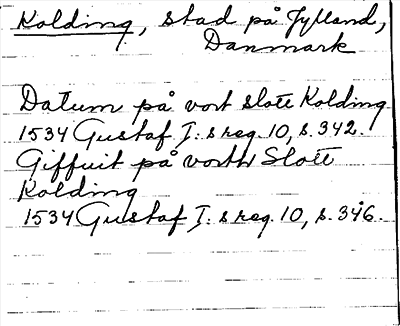 Kolding, stad på Jylland,
Danmark
Datum på vort slott Kolding
1534 Gustaf I:s reg. 10, s. 342.
Giffuit på vorth Slott
Kolding
1534 Gustaf I:s reg. 10, s. 346.